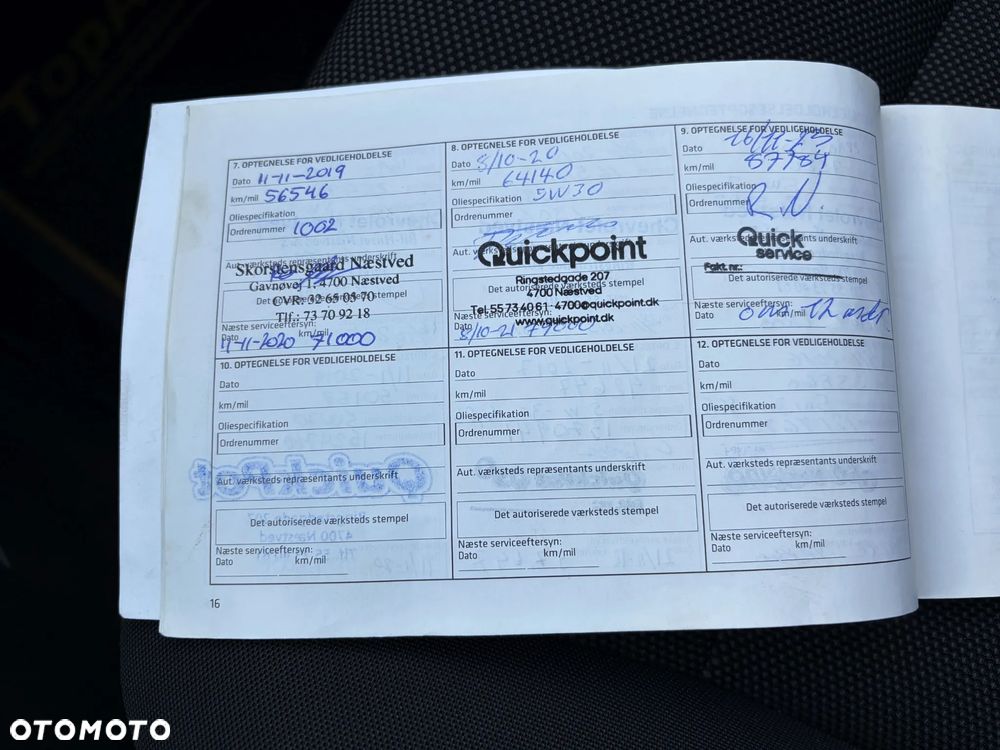 7. OPTEGNELSE FOR VEDLIGEHOLDELSE
Dato 11-11-2019
km/mil 56546
Oliespecifikation
Ordrenummer 1002
Aut. værksteds repræsentants underskrift
Skorstensgaard Næstved
Gavnøvej 1, 4700 Næstved
Det autoriserede værksteds stempel
CVR: 32 65 05 70
Tlf.: 73 70 92 18
Næste serviceeftersyn:
Dato km/mil
11-11-2020 71000
8. OPTEGNELSE FOR VEDLIGEHOLDELSE
Dato 8/10-20
km/mil 64140
Oliespecifikation 5W30
Ordrenummer
Aut. værksteds
Quickpoint
Ringstedgade 207
Det autoriserede værksteds stempel
4700 Næstved
Tel. 55 73 40 61 - 4700@quickpoint.dk
Næste serviceeftersyn:
www.quickpoint.dk
Dato km/mil
8/10-21 79000
9. OPTEGNELSE FOR VEDLIGEHOLDELSE
Dato 16/11-23
km/mil 87784
Oliespecifikation
Ordrenummer R.N.
Aut. værksteds repræsentants underskrift
Quick
service
Fakt. nr.:
Det autoriserede værksteds stempel
Næste serviceeftersyn:
Dato km/mil
om 12 mdr.
10. OPTEGNELSE FOR VEDLIGEHOLDELSE
Dato
km/mil
Oliespecifikation
Ordrenummer
Aut. værksteds repræsentants underskrift
Det autoriserede værksteds stempel
Næste serviceeftersyn:
Dato km/mil
11. OPTEGNELSE FOR VEDLIGEHOLDELSE
Dato
km/mil
Oliespecifikation
Ordrenummer
Aut. værksteds repræsentants underskrift
Det autoriserede værksteds stempel
Næste serviceeftersyn:
Dato km/mil
12. OPTEGNELSE FOR VEDLIGEHOLDELSE
Dato
km/mil
Oliespecifikation
Ordrenummer
Aut. værksteds repræsentants underskrift
Det autoriserede værksteds stempel
Næste serviceeftersyn:
Dato km/mil
16
OTOMOTO